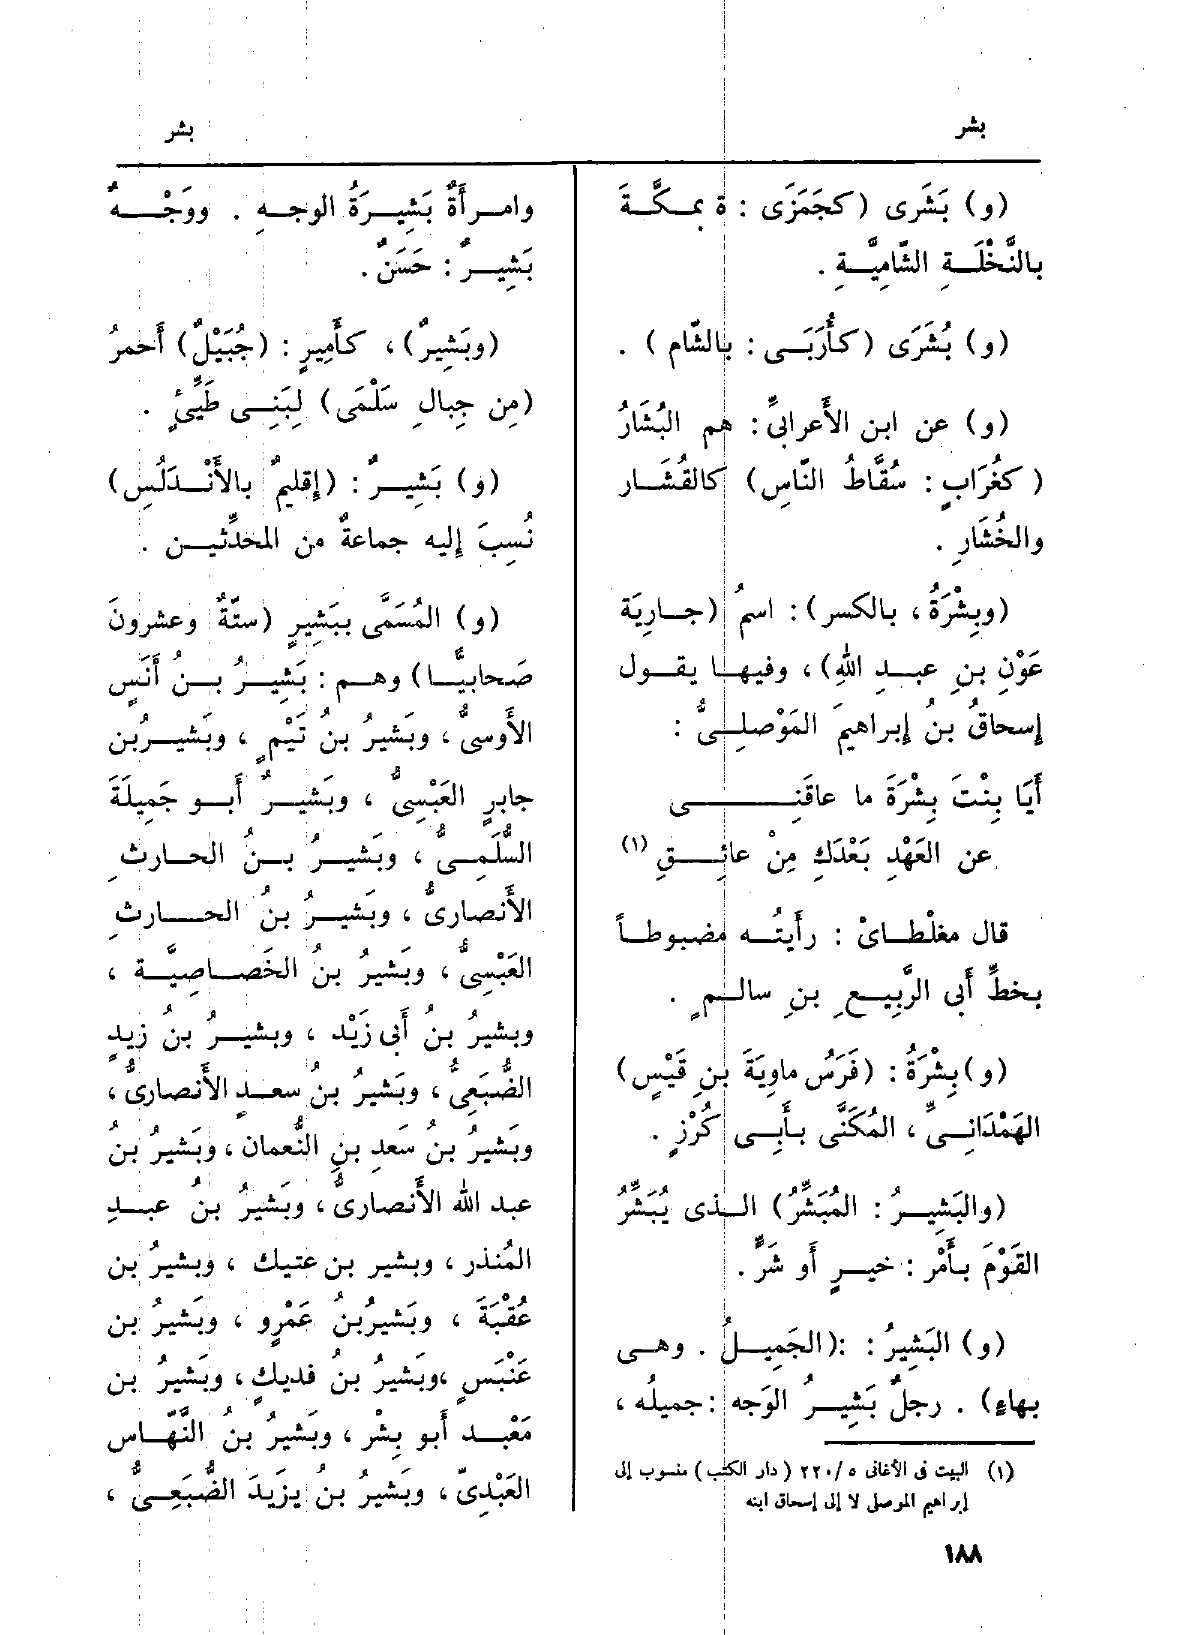 بشر
بشر
(و) بَشَرى (كجَمَزَى : ة بمكَّةَ
بالنَّخْلَةِ الشّامِيَّةِ .
(و) بُشَرَى (كأُرَبَى : بالشّام ) .
(و) عن ابن الأَعرابىِّ : هم البُشَارُ
( كغُرَابٍ : سُقَّاطُ النّاسِ) كالقُشَار
والخُشَارِ .
(وبِشْرَةُ ، بالكسر) : اسمُ (جارِيَة
عَوْنِ بنِ عبدِ اللهِ) ، وفيها يقول
إسحاقُ بنُ إبراهيمَ المَوْصلِىُّ :
أَيَا بِنْتَ بِشْرَةَ ما عاقَنِى
عن العَهْدِ بَعْدَكِ مِنْ عائِقِ (١)
قال مغلْطاىْ : رأَيتُه مضبوطاً
بخطِّ أَبى الرَّبِيعِ بنِ سالمٍ .
(و) بِشْرَةُ : (فَرَسُ ماوِيَةَ بنِ قَيْسٍ)
الهَمْدَانِىِّ ، المُكَنَّى بأَبِى كُرْزٍ .
(والبَشِيرُ : المُبَشِّرُ) الذى يُبَشِّرُ
القَوْمَ بأَمْرٍ : خيرٍ أَو شَرٍّ .
(و) البَشِيرُ : :(الجَمِيلُ . وهى
بهاءٍ) . رجلٌ بَشِيرُ الوَجه : جميلُه ،
(١) البيت فى الأغانى ٥ /٢٢٠ ( دار الكتب ) منسوب إلى
إبراهيم الموصلى لا إلى إسحاق ابنه
وامرأَةٌ بَشِيرَةُ الوجهِ . ووَجْهٌ
بَشِيرٌ : حَسَنٌ .
(وبَشِيرٌ) ، كأَمِيرٍ : (جُبَيْلٌ) أَحْمرُ
(مِن جِبالِ سَلْمَى) لِبَنِى طَيِّئٍ .
(و) بَشِيرٌ : (إقليمٌ بالأَنْدَلُسِ)
نُسِبَ إليه جماعةٌ من المحدِّثين .
(و) المُسَمَّى ببَشِيرٍ (ستّةٌ وعشرونَ
صَحابيًّا) وهم : بَشِيرُ بنُ أَنَسٍ
الأَوسىُّ ، وبَشيرُ بنُ تَيْمٍ ، وبَشيرُبن
جابرٍ العَبْسِىُّ ، وبَشيرٌ أَبو جَمِيلَةَ
السُّلَمِىُّ ، وبَشيرُ بنُ الحارثِ
الأَنصارىُّ ، وبَشيرُ بنُ الحارثِ
العَبْسِىُّ ، وبَشيرُ بنُ الخَصاصِيَّة ،
وبشيرُ بنُ أَبى زَيْد ، وبشيرُ بنُ زيدٍ
الضُّبَعِىُّ ، وبَشيرُ بنُ سعدٍ الأَنصارىُّ ،
وبَشيرُ بنُ سَعدِ بنِ النُّعمان ، وبَشيرُ بنُ
عبد الله الأَنصارىُّ ، وبَشيرُ بنُ عبدِ
المُنذر ، وبشير بن عتيك ، وبشيرُ بن
عُقْبَةَ ، وبَشيرُبنُ عَمْرٍو ، وبَشيرُ بن
عَنْبَسٍ ،وبَشيرُ بنُ فديكٍ ، وبَشيرُ بن
مَعْبد أَبو بِشْر ، وبَشيرُ بنُ النَّهّاس
العَبْدِىّ ، وبَشيرُ بنُ يزيدَ الضُّبَعِىُّ ،
١٨٨